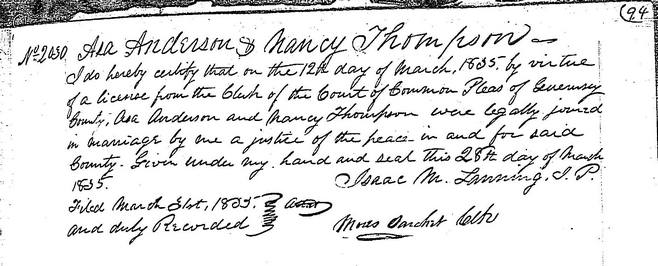 (94
No 2030. Asa Anderson & Nancy Thompson
I do hereby certify that on the 12th day of March, 1835, by virtue
of a license from the Clerk of the Court of Common Pleas of Guernsey
County, Asa Anderson and Nancy Thompson were legally joined
in marriage by me a justice of the peace in and for said
County. Given under my hand and seal this 28th day of March
1835. Isaac M. Lanning, J. P.
Filed March 31st, 1835.
and duly Recorded Moses Sarchet Clk